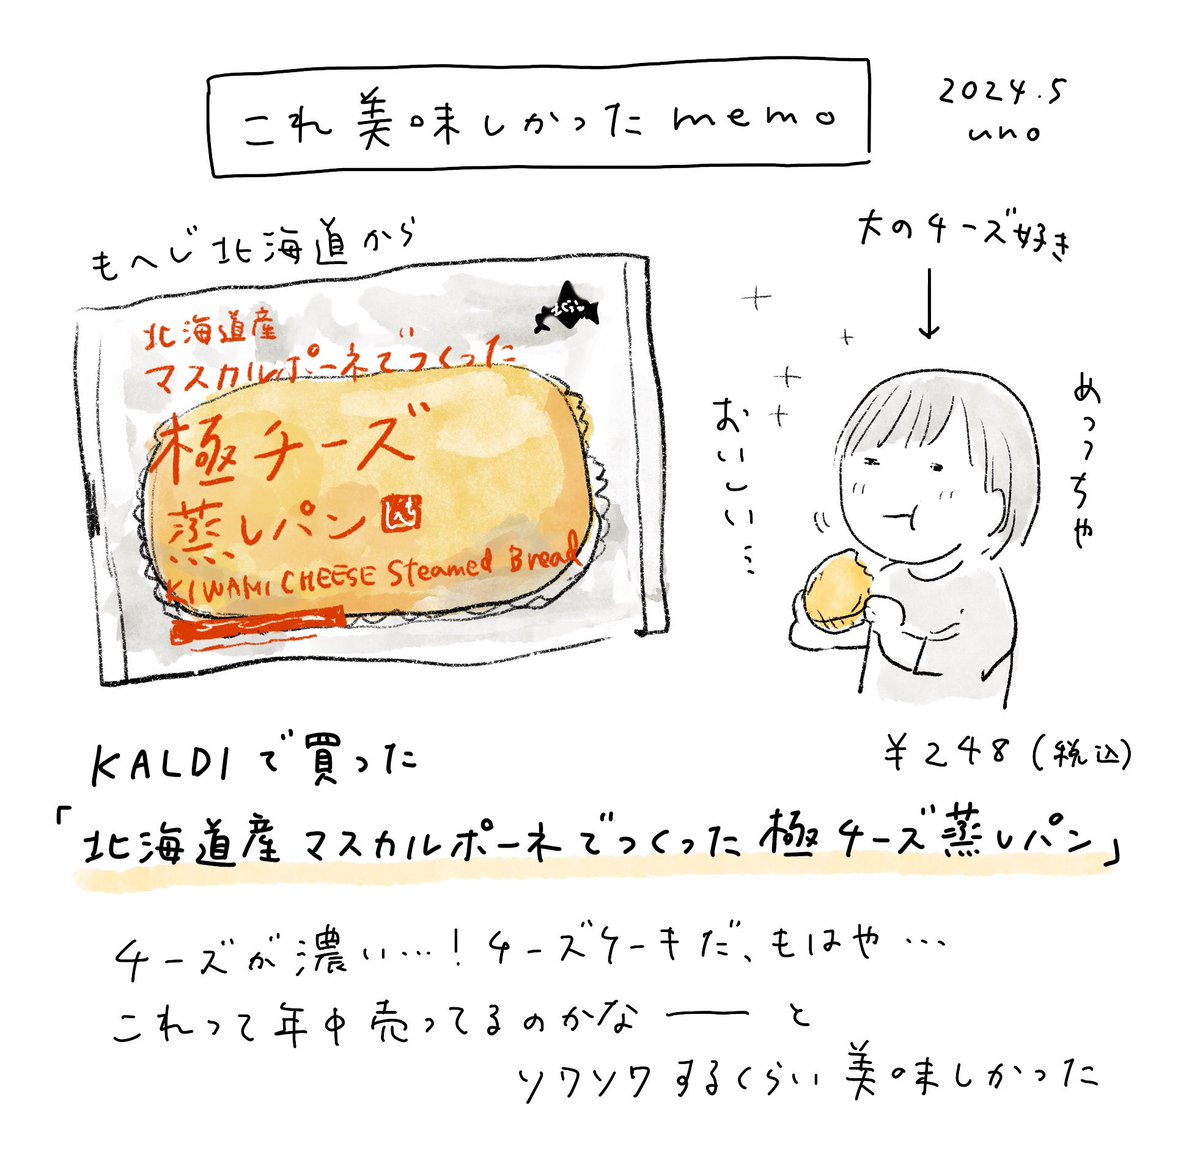 これ美味しかったmemo
2024.5
uno
もへじ北海道から
北海道産
マスカルポーネでつくった
極チーズ
蒸しパン
KIWAMI CHEESE Steamed Bread
大のチーズ好き
めっっちゃ
おいしい…
KALDIで買った
¥248(税込)
「北海道産マスカルポーネでつくった極チーズ蒸しパン」
チーズが濃い…!チーズケーキだ、もはや…
これって年中売ってるのかな ── と
ソワソワするくらい美味しかった